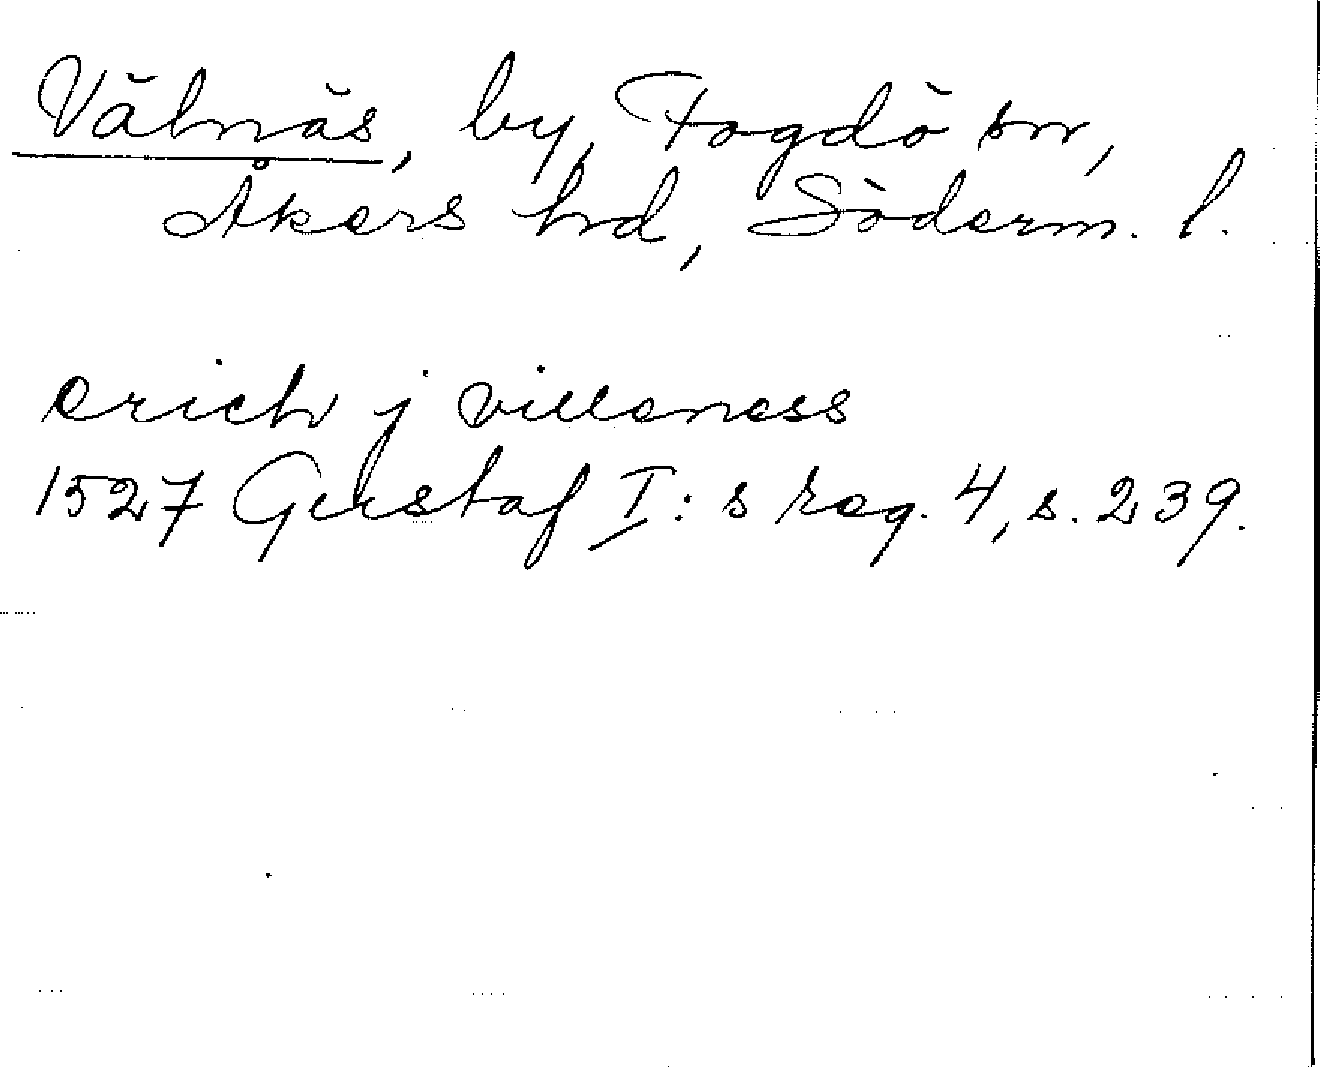 Välnäs, by, Fogdö sn,
Åkers hd, Söderm. l.
erich j villeness
1527 Gustaf I:s reg. 4, s. 239.